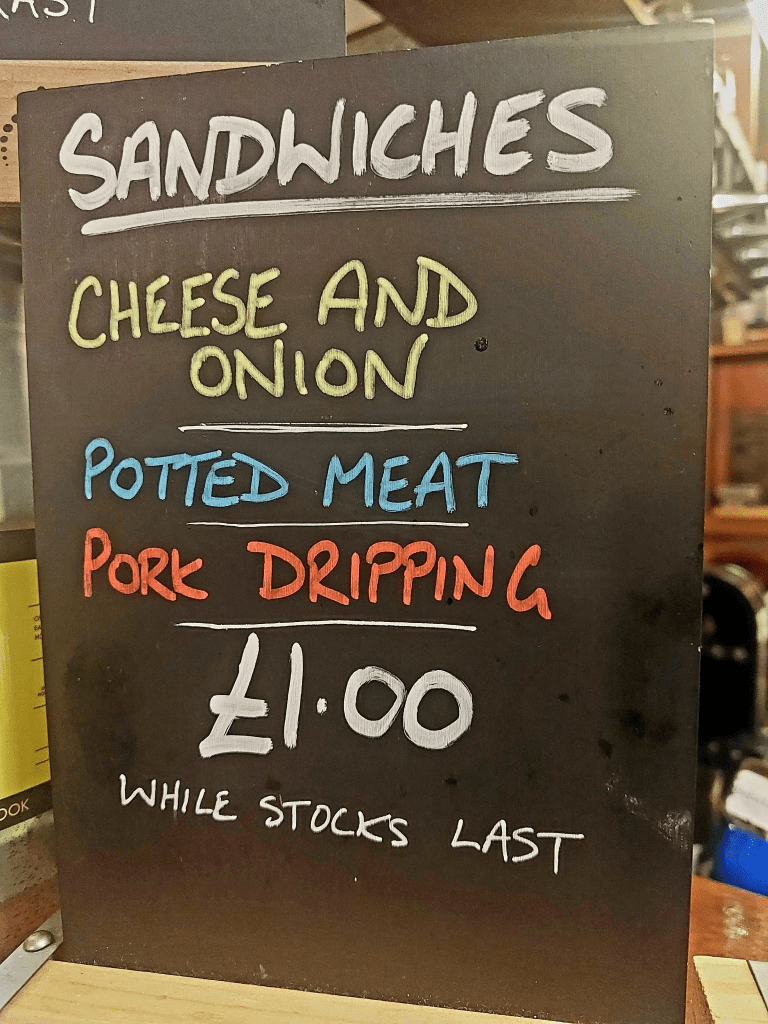 SANDWICHES
CHEESE AND
ONION
POTTED MEAT
PORK DRIPPING
£1.00
WHILE STOCKS LAST